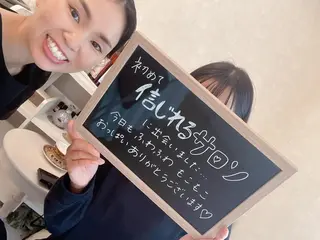 初めて
信じれるサロン
に出会いました…
今日もふわふわ もこもこ
おっぱいありがとうございます♡